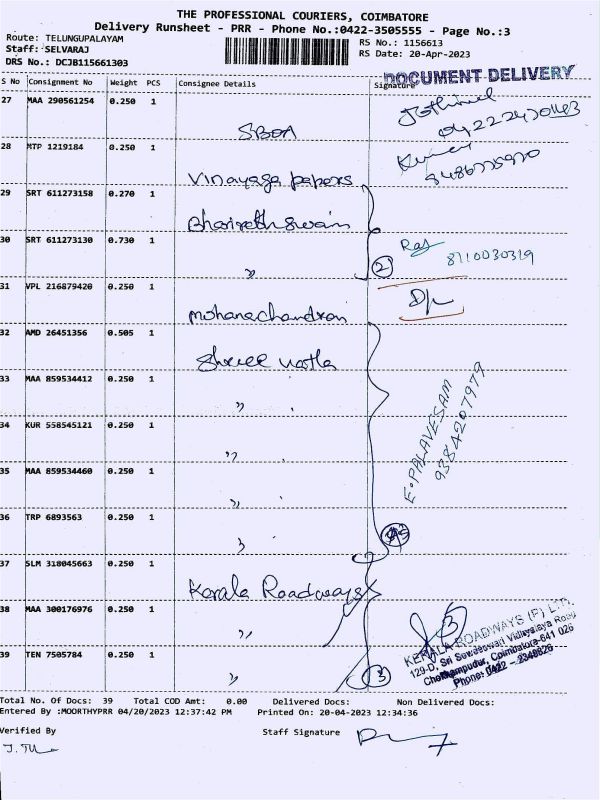 THE PROFESSIONAL COURIERS, COIMBATORE
Delivery Runsheet - PRR - Phone No.:0422-3505555 - Page No.:3
Route: TELUNGUPALAYAM
Staff: SELVARAJ
DRS No.: DCJB115661303
RS No.: 1156613
RS Date: 20-Apr-2023
DOCUMENT DELIVERY
S No Consignment No Weight PCS Consignee Details Signature
27 MAA 290561254 0.250 1
28 MTP 1219184 0.250 1
Vinayaga papers
29 SRT 611273158 0.270 1
30 SRT 611273130 0.730 1
〃 2 Raj 8110030319
31 VPL 216879420 0.250 1
Mohanachandran
32 AMD 26451356 0.505 1
33 MAA 859534412 0.250 1
〃
34 KUR 558545121 0.250 1
〃
E. PALAVESAM
9384207979
35 MAA 859534460 0.250 1
〃
36 TRP 6893563 0.250 1
〃
37 SLM 318045663 0.250 1
Kerala Roadways
38 MAA 300176976 0.250 1
〃 3
KERALA ROADWAYS (P) LTD.
129-D, Sri Saweswari Vidhyalaya Road
Chettampudur, Coimbatore-641 026
Phone: 0422 - 2348626
39 TEN 7505784 0.250 1
〃 3
Total No. Of Docs: 39 Total COD Amt: 0.00 Delivered Docs: Non Delivered Docs:
Entered By :MOORTHYPRR 04/20/2023 12:37:42 PM Printed On: 20-04-2023 12:34:36
Verified By Staff Signature